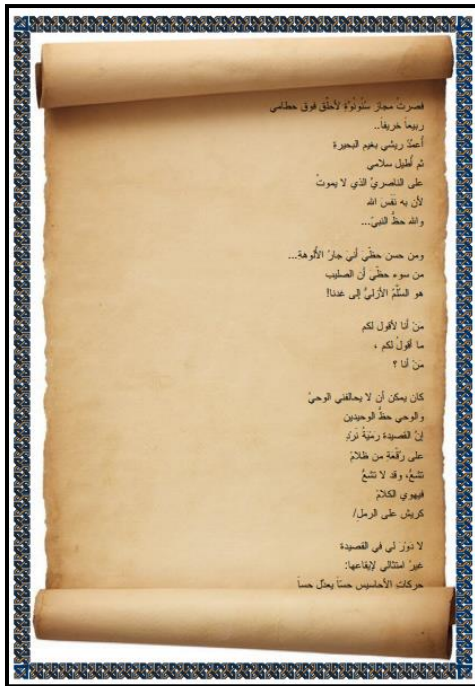 فصرتُ مجاز سُنُونُوَّةٍ لأحلِّق فوق حطامي
ربيعاً خريفاً..
أُعمِّدُ ريشي بغيم البحيرة
ثم أُطيل سلامي
على الناصريِّ الذي لا يموتُ
لأن به نَفَسَ الله
والله حظُّ النبيّ...
ومن حسن حظّيَ أنيَ جارُ الأُلوهةِ...
من سوء حظّيَ أن الصليب
هو السُلَّمُ الأزليُّ إلى غدنا!
مَنْ أنا لأقول لكم
ما أقولُ لكم ،
مَنْ أنا ؟
كان يمكن أن لا يحالفني الوحيُ
والوحي حظُّ الوحيدين
إنَّ القصيدة رَمْيَةُ نَرْدٍ
على رُقْعَةٍ من ظلامْ
تشعُّ، وقد لا تشعُّ
فيهوي الكلامْ
كريش على الرملِ/
لا دَوْرَ لي في القصيدة
غيرُ امتثالي لإيقاعها:
حركاتِ الأحاسيس حسّاً يعدِّل حساً